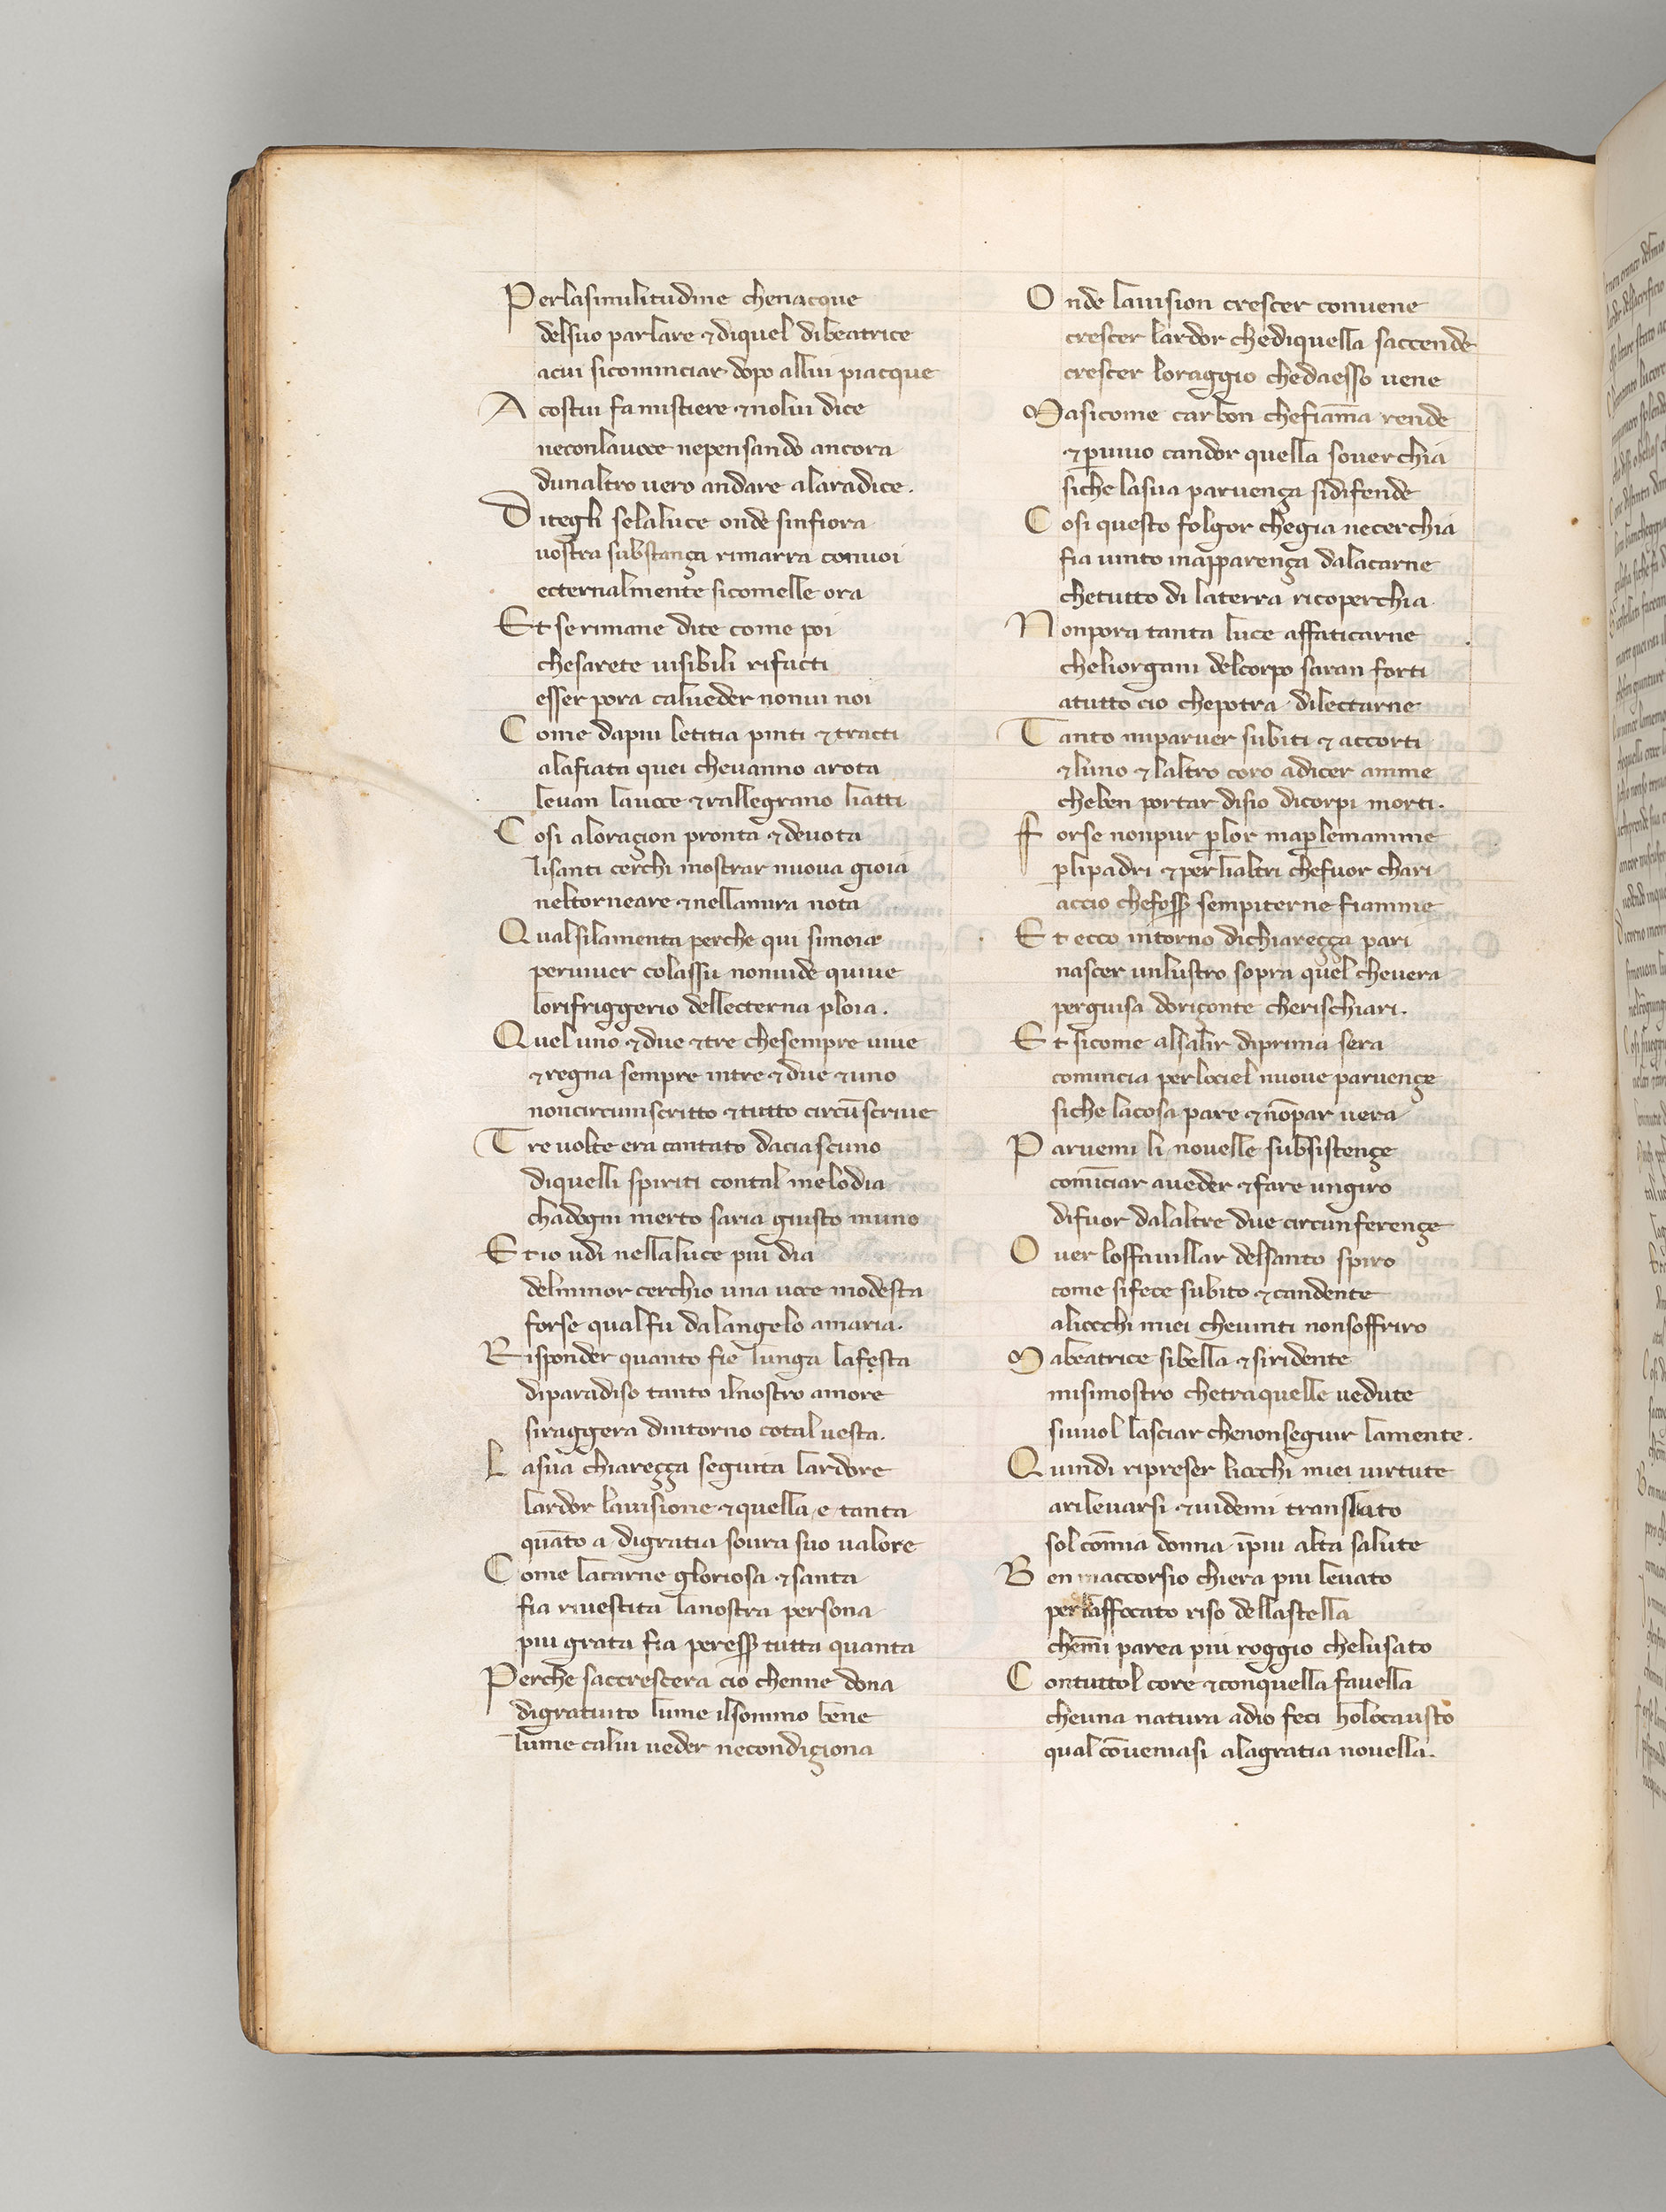 Perlasimilitudine chenacque
delsuo parlare & diquel dibeatrice
acui sicominciar dopo allui piacque
A costui fa mistiere & nolui dice
neconlauoce nepensando ancora
dunaltro uero andare alaradice.
Ditegli selaluce onde sinfiora
uostra substança rimarra conuoi
ecternalmente sicomelle ora
Et se rimane dite come poi
chesarete uisibili rifacti
esser pora calueder nonui noi
Come dapiu letitia pinti & tracti
alafiata quei cheuanno arota
leuan lauoce & rallegrano liatti
Cosi aloraçion pronta & deuota
lisanti cerchi mostrar nuoua gioia
neltorneare & nellamira nota
Qualsilamenta perche qui simoia
peruiuer colassu nonuide quiue
lorifriggerio dellecterna ploia.
Quel uno & due & tre chesempre uiue
& regna sempre intre & due & uno
noncircumscritto & tutto circūscriue
Tre uolte era cantato daciascuno
diquelli spiriti contal melodia
chadogni merto saria giusto muno
Et io udi nellaluce piu dia
delminor cerchio una uoce modesta
forse qualfu dalangelo amaria.
Risponder quanto fie lunga lafesta
diparadiso tanto ilnostro amore
siraggera dintorno cotal uesta.
Lasua chiareçça seguita lardore
lardor lauisione & quella e tanta
quāto a digratia soura suo ualore
Come lacarne gloriosa & santa
fia riuestita lanostra persona
piu grata fia peress tutta quanta
Perche saccrescera cio chenne dona
digratuito lume ilsommo bene
lume calui ueder necondiçiona
Onde lauision crescer conuene
crescer lardor chediquella saccende
crescer loraggio chedaesso uene
Masicome carbon chefiāma rende
& p̱uiuo candor quella souerchia
siche lasua paruença sidifende
Cosi questo folgor chegia necerchia
fia uinto inapparença dalacarne
chetutto di laterra ricoperchia.
Nonpora tanta luce affaticarne
cheliorgani delcorpo saran forti
atutto cio chepotra dilectarne
Tanto miparuer subiti & accorti
& luno & laltro coro adicer amme
cheben portar disio dicorpi morti.
Forse nonpur p̱lor map̱lemamme
p̱lipadri & per lialtri chefuor chari
accio chefoss̱ sempiterne fiamme
Et ecco intorno dichiareçça pari
nascer unlustro sopra quel cheuera
perguisa doriçonte cherischiari.
Et sicome alsalir diprima sera
comincia perlociel nuoue paruençe
siche lacosa pare & nōpar uera
Paruemi li nouelle subsistençe
comīciar aueder & fare ungiro
difuor dalaltre due circunferençe
Ouer loffauillar delsanto spiro
come sifece subito & candente
aliocchi miei cheuinti nonsoffriro
Mabeatrice sibella & siridente
misimostro chetraquelle uedute
siuuol lasciar chenonseguir lamente.
Quindi ripreser liocchi miei uirtute
arileuarsi & uidemi translato
sol cōmia donna īpiu alta salute
Ben maccorsio chiera piu leuato
per laffocato riso dellastella
chemī parea piu roggio chelusato
Contuttol core & conquella fauella
cheuna natura adio feci holocausto
qual cōueniasi alagratia nouella.